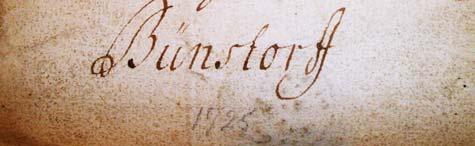 Bünstorff
1725